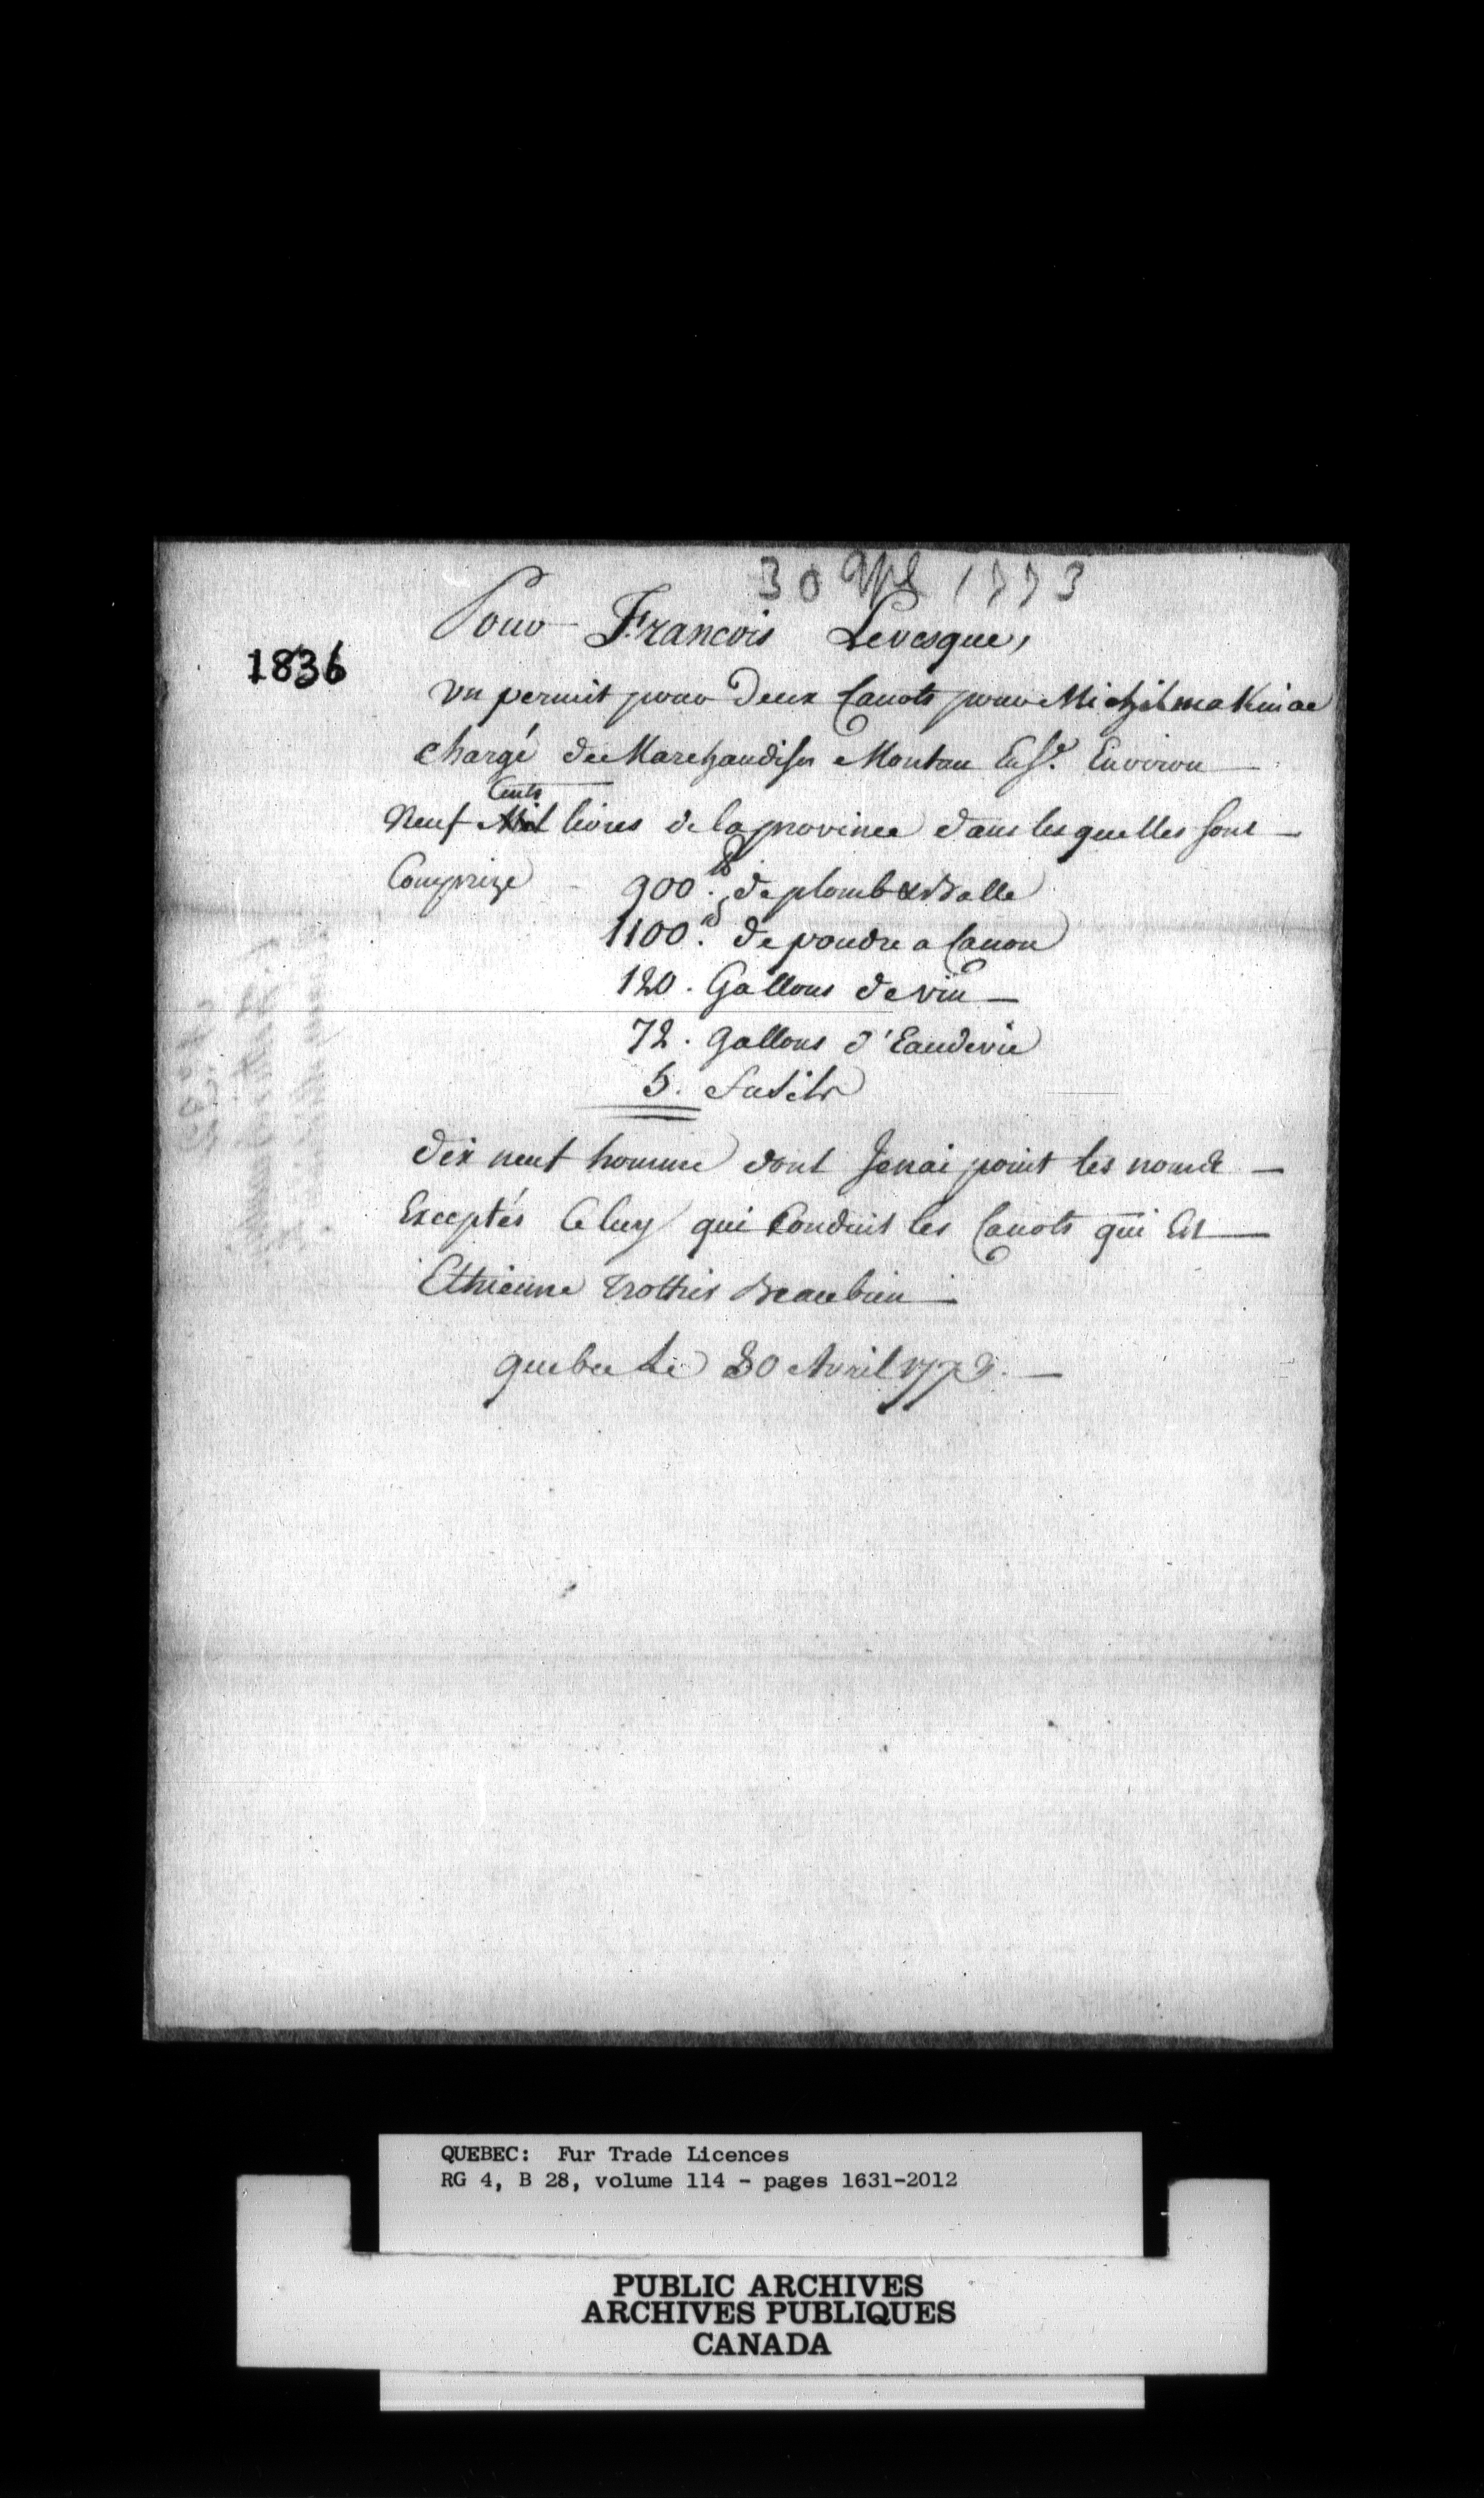 30 Apl 1773
Pour Francois Levesque,
1836
un permit pour deux Canots pour Michilmakinac
chargé de Marchandises Montan Ens.e Environ
Cents
Neuf Mil livres de la province dans les quelles sont
Comprize 900 lb de plomb & Balle
1100 lb de poudre a Canon
120. Gallons de vin
72. gallons d'Eaudevie
5. fusils
dix neuf homme dont Jenai point les nomds
Exceptés Celuy qui Conduit les Canots qui Est
Ethienne trottier Beaubien
quebec Le 30 Avril 1773.
QUEBEC: Fur Trade Licences
RG 4, B 28, volume 114 - pages 1631-2012
PUBLIC ARCHIVES
ARCHIVES PUBLIQUES
CANADA